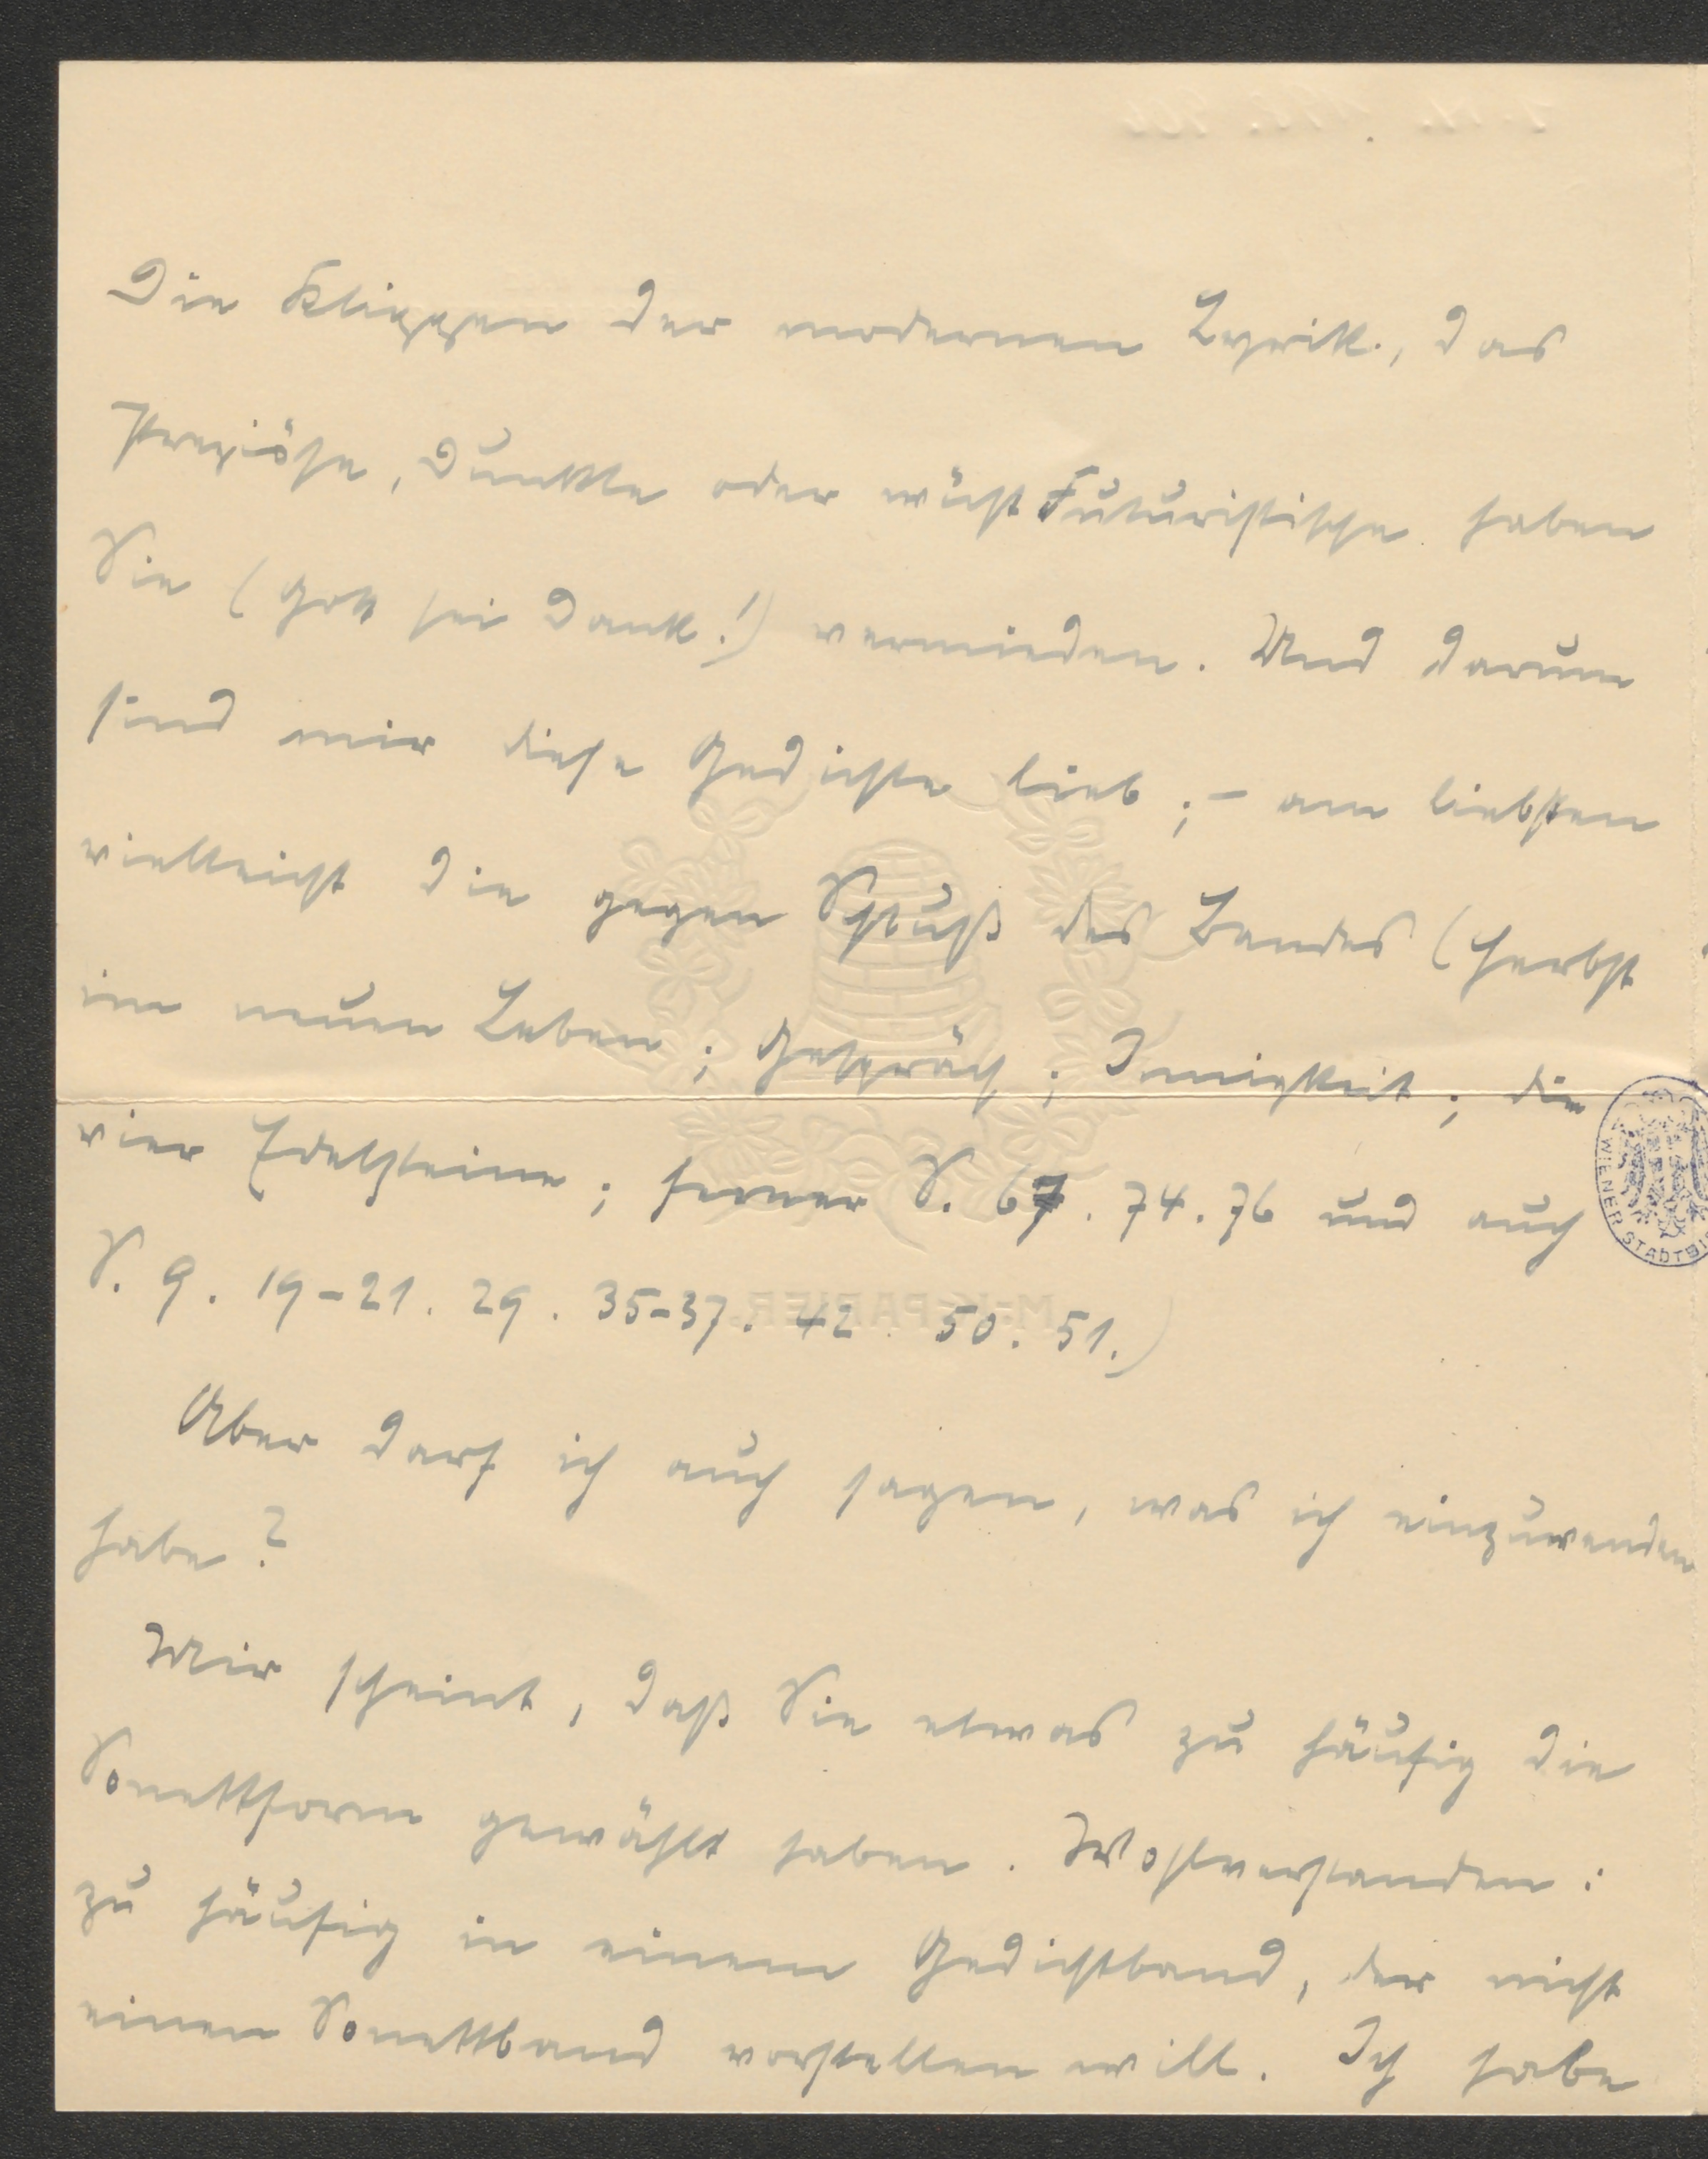 Die Klippen der modernen Lyrik, das
Preziöse, Dunkle oder wüst Futuristische haben
Sie (Gott sei Dank!) vermieden. Und darum
sind mir diese Gedichte lieb; – am liebsten
vielleicht die gegen Schluß des Bandes (Herbst
im neuen Leben; Gespräch; Innigkeit; die
vier Edelsteine; ferner S. 67. 74. 76 und auch
S. 9. 19–21. 29. 35–37. 42. 50. 51.)
Aber darf ich auch sagen, was ich einzuwenden
habe?
Mir scheint, daß Sie etwas zu häufig die
Sonettform gewählt haben. Wohlverstanden:
zu häufig in einem Gedichtband, der nicht
einen Sonettband vorstellen will. Ich habe
WIENER STADTBI
M.-K.-PAPIER